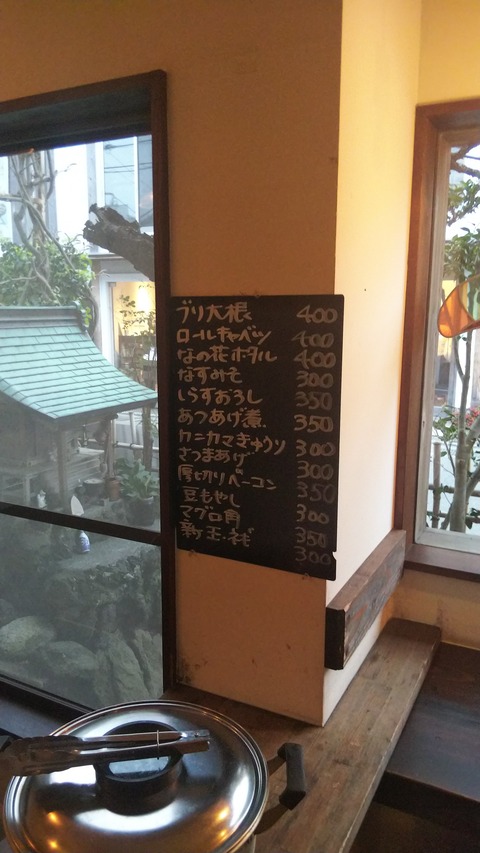 ブリ大根 400
ロールキャベツ 400
なの花ホタル 400
なすみそ 300
しらすおろし 350
あつあげ煮 350
カニカマきゅうり 300
さつまあげ 300
厚切りベーコン 350
豆もやし 300
マグロ角 350
新玉ねぎ 300